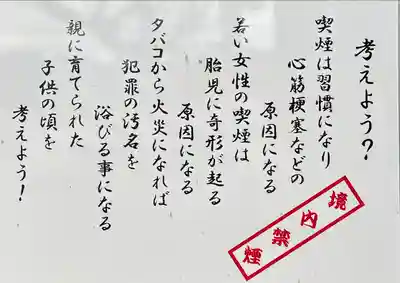 考えよう？
喫煙は習慣になり
心筋梗塞などの
原因になる
若い女性の喫煙は
胎児に奇形が起る
原因になる
タバコから火災になれば
犯罪の汚名を
浴びる事になる
親に育てられた
子供の頃を
考えよう！
境内禁煙